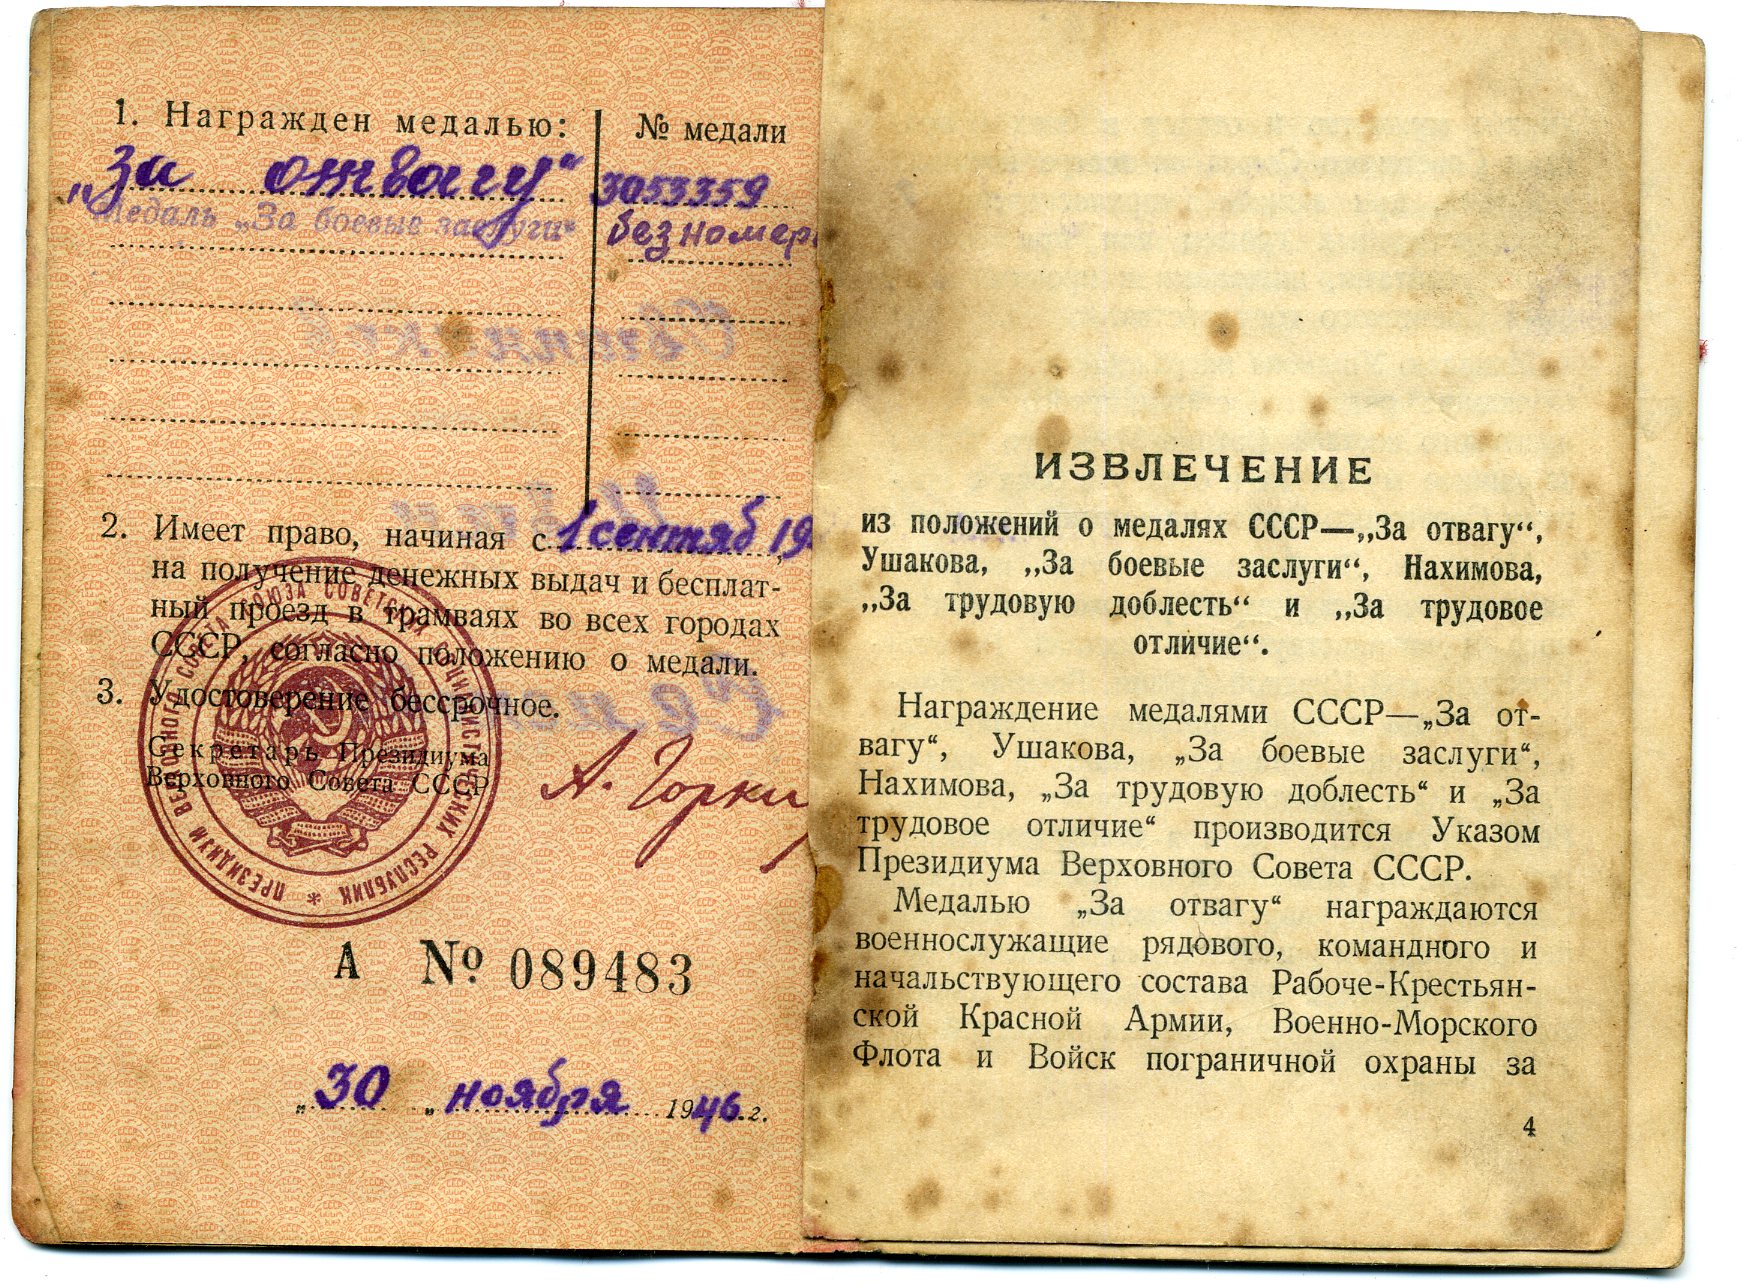 1. Награжден медалью:
№ медали
„За отвагу“
3053359
Медаль „За боевые заслуги“
без номер
2. Имеет право, начиная с 1 сентяб 19
на получение денежных выдач и бесплат-
ный проезд в трамваях во всех городах
СССР, согласно положению о медали.
3. Удостоверение бессрочное.
Секретарь Президиума
Верховного Совета СССР
А. Горки
ПРЕЗИДИУМ ВЕРХОВНОГО СОВЕТА СОЮЗА СОВЕТСКИХ СОЦИАЛИСТИЧЕСКИХ РЕСПУБЛИК *
А № 089483
„30„ ноября 1946.г.
ИЗВЛЕЧЕНИЕ
из положений о медалях СССР—„За отвагу“,
Ушакова, „За боевые заслуги“, Нахимова,
„За трудовую доблесть“ и „За трудовое
отличие“.
Награждение медалями СССР—„За от-
вагу“, Ушакова, „За боевые заслуги“,
Нахимова, „За трудовую доблесть“ и „За
трудовое отличие“ производится Указом
Президиума Верховного Совета СССР.
Медалью „За отвагу“ награждаются
военнослужащие рядового, командного и
начальствующего состава Рабоче-Крестьян-
ской Красной Армии, Военно-Морского
Флота и Войск пограничной охраны за
4